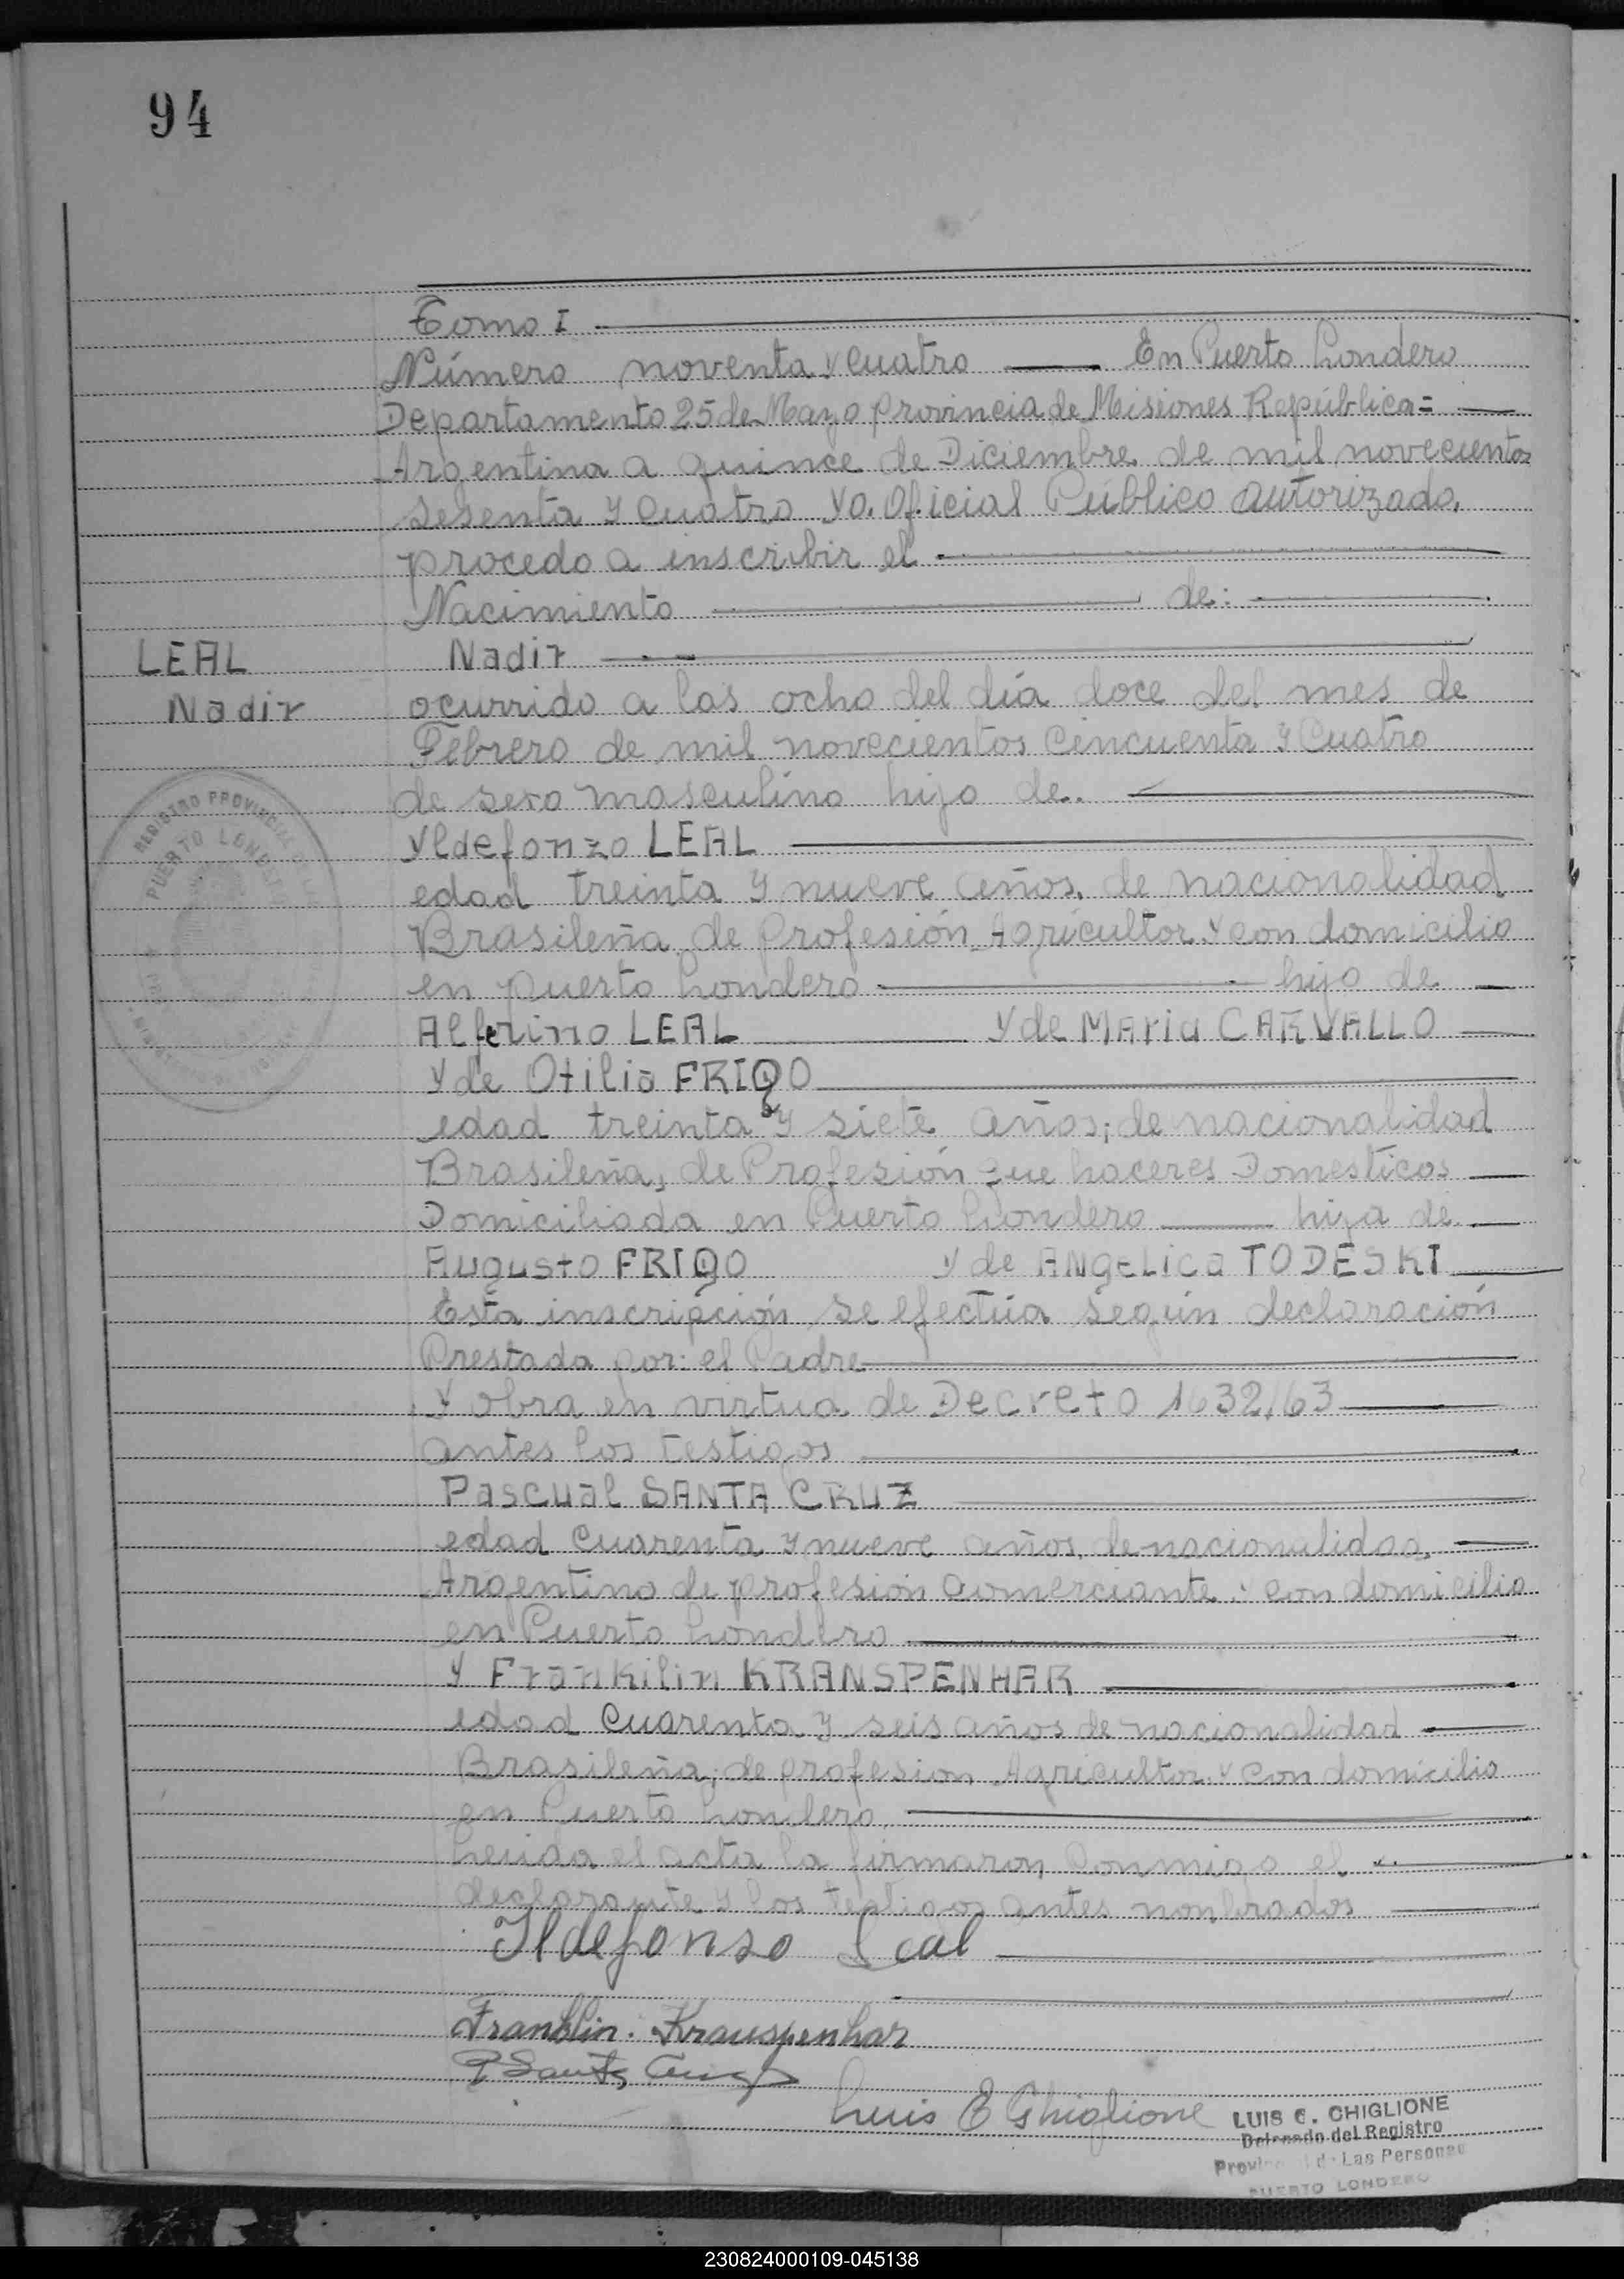 94
Tomo I
Número noventa y cuatro En Puerto Londero
Departamento 25 de Mayo provincia de Misiones República=
Argentina a quince de Diciembre de mil novecientos
sesenta y cuatro yo. Oficial Público autorizado,
procedo a inscribir el
Nacimiento de:
LEAL Nadir
Nadir ocurrido a las ocho del día doce del mes de
Febrero de mil novecientos cincuenta y cuatro
de sexo masculino hijo de.
Yldefonzo LEAL
edad treinta y nueve años, de nacionalidad
Brasileña, de profesión Agricultor y con domicilio
en puerto Londero hijo de
Alferino LEAL y de Maria CARVALLO
REGISTRO PROVINCIAL DE LAS
PUERTO LONDERO
y de Otilia FRIGO
edad treinta y siete años; de nacionalidad
Brasileña, de Profesión que haceres Domesticos
Domiciliada en Puerto Londero hija de
Augusto FRIGO y de ANgeLica TODESKI
Esta inscripción se efectúa según declaración
Prestada por: el Padre
y obra en virtud de Decreto 1632/63
antes los testigos
Pascual SANTA CRUZ
edad cuarenta y nueve años, de nacionalidad,
Argentino de profesión comerciante y con domicilio
en Puerto Londero
y Frankilin KRANSPENHAR
edad cuarenta y seis años de nacionalidad
Brasileña; de profesion Agricultor y con domicilio
en Puerto Londero
Leida el acta la firmaron, conmigo el
declarante y los testigos antes nonbrados
Ildefonso Leal
Franklin. Krauspenhar
P Santa Cruz
Luis E Ghiglione
LUIS E. GHIGLIONE
Delegado del Registro
Provincial de Las Personas
PUERTO LONDERO
230824000109-045138